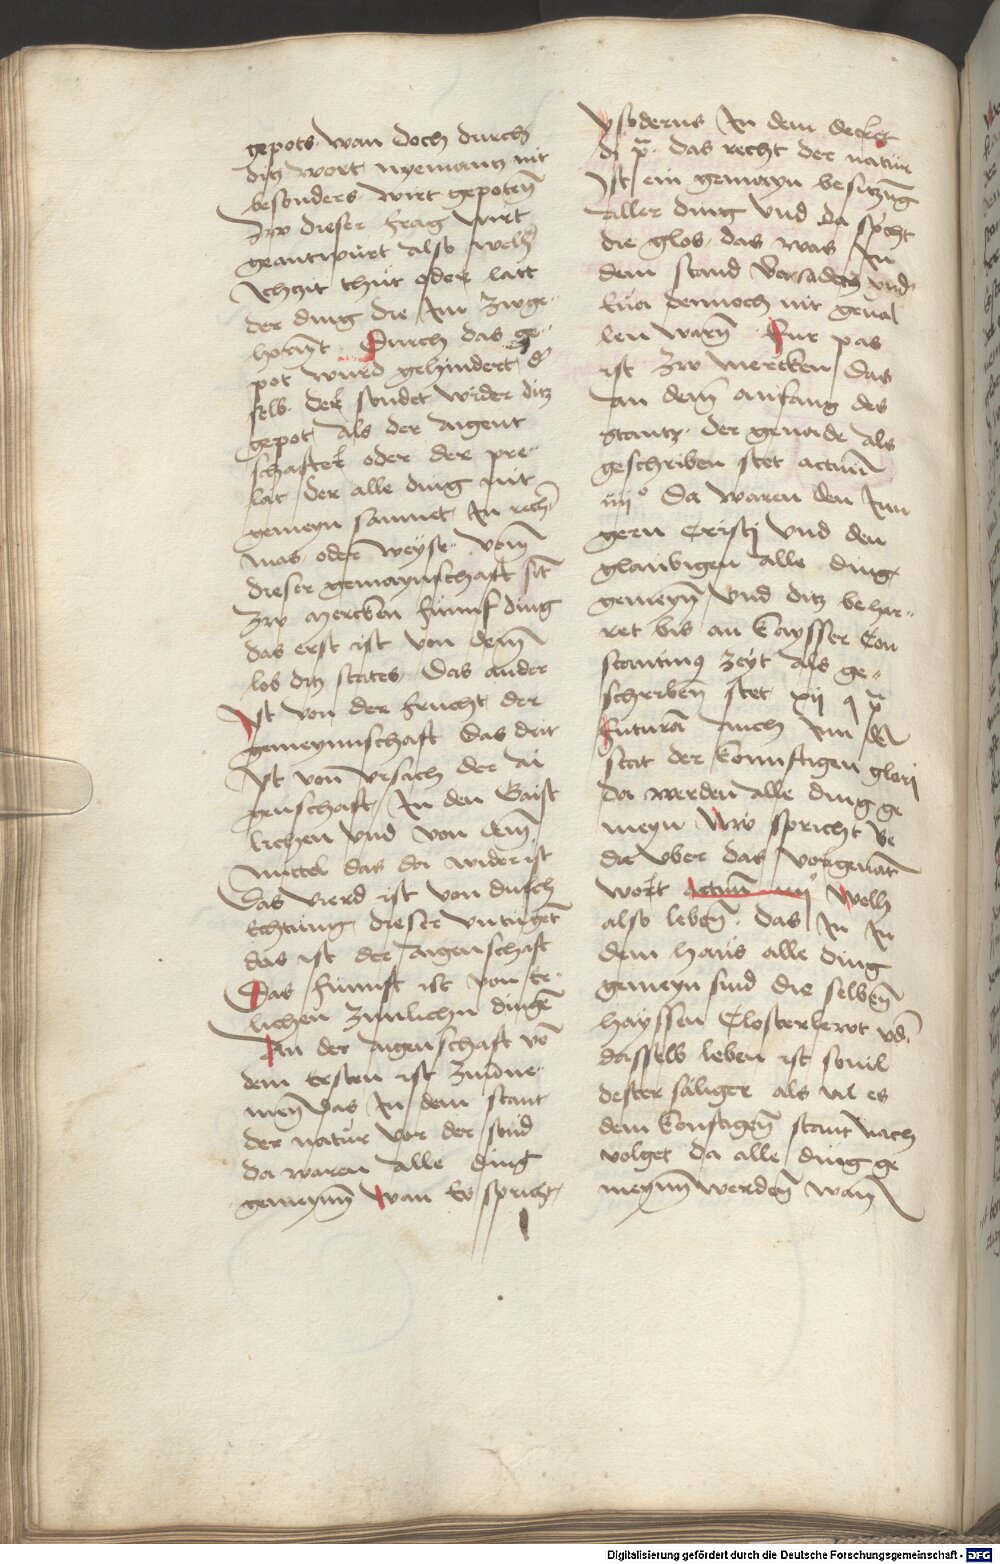 gepots wan doch durch
ditz wort nyemantz nit
besonders wirt gepotē
Zw dieser frag wirt
geantwurt also welh̄
Ichzit thut oder latt
der ding die Im zwge-
hornt Durch das ge-
pot wurd gehindert d̄
selb der sundet wider ditz
gepot als der aigent
schafter oder der pre-
lat der alle ding nit
gemeyn samnet In rech̄
mas oder weyse vom̄
dieser gemaynschaft sīt
zw mercken funnf ding
das erst ist von dem̄
lob ditz states Das ander
Ist von der frucht der
gemeynnschaft Das drit
Ist von vrsach der ai
genschaft In den Gaist
lichen vnd von dem̄
mittel das da wider ist
Das vierd ist von durch
Echtung dieser vntuget̄
das ist der aigenschaft
Das funnft ist von et-
lichen zimlichn dingē
In der aigenschaft vō
dem Ersten ist zuuone-
men Das In dem stant
der natur vor der sund
da waren alle ding
gemeynn̄ wan Es spricht
ysoderus In dem decket
di p̄ª das recht der natur
Ist ein gemayn besitzūg
aller ding Vnd da spricht
die glos das was In
dem stand vnd
Eua dennoch nit geual
len warn̄ Fur pas
ist zw mercken das
an dem̄ anfang des
stantz der genade als
geschriben stet actuū
iiijº Da waren den Jun
gern Cristi Vnd den
glaubigen alle ding
gemeyn̄ Vnd ditz behar-
ret bis an kaysser Con
stantinus Zeyt Als ge-
schriben̄ stet xij q p̄ª
futurā Auch Inn der
stat der konnftigen glori
da werden alle ding ge
meyn Wo spricht be
da vber das vorgenāt
wort actuū iiijº Welh
also leben̄ das In In
dem haus alle ding
gemeyn sind die selben̄
hayssen Closterlewt vn̄d
dasselb leben ist souil
dester saliger als vil es
dem konftigen̄ stant nach
volget da alle ding ge
meynn werden̄ wan̄
Digitalisierung gefördert durch die Deutsche Forschungsgemeinschaft - DFG